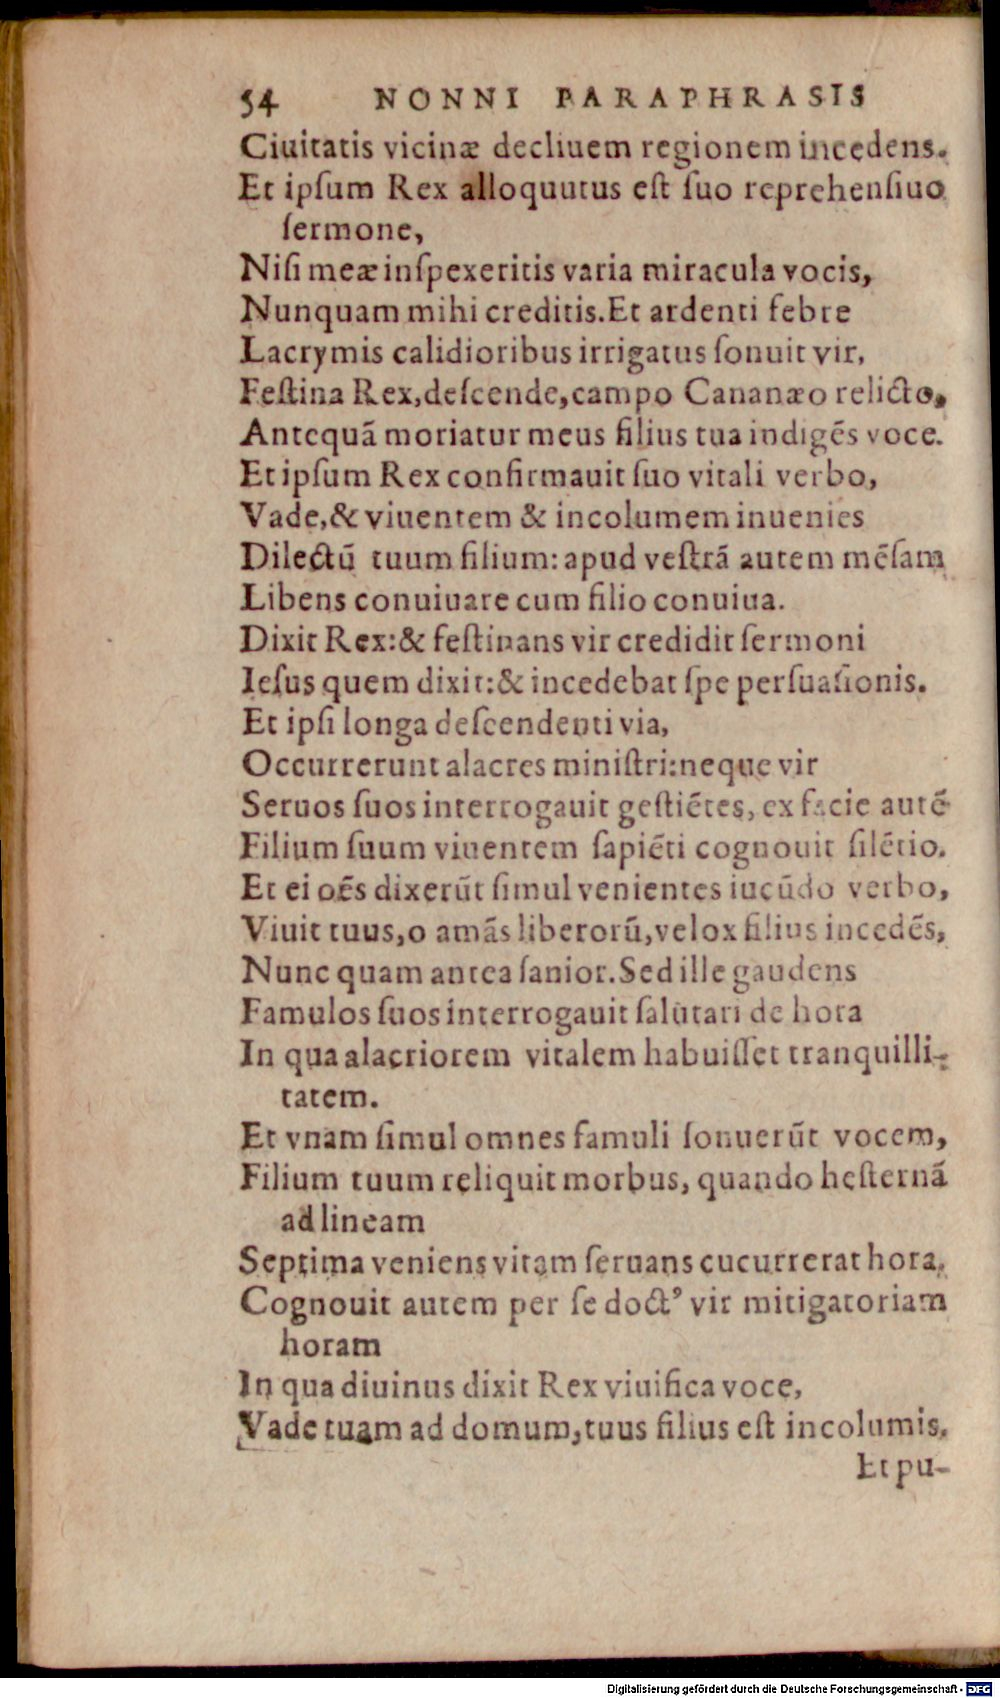 54 NONNI PARAPHRASIS
Ciuitatis vicinæ decliuem regionem incedens.
Et ipſum Rex alloquutus eſt ſuo reprehenſiuo
ſermone,
Niſi meæ inſpexeritis varia miracula vocis,
Nunquam mihi creditis. Et ardenti febre
Lacrymis calidioribus irrigatus ſonuit vir,
Feſtina Rex, deſcende, campo Cananæo relicto,
Antequã moriatur meus filius tua indigẽs voce.
Et ipſum Rex confirmauit ſuo vitali verbo,
Vade, & viuentem & incolumem inuenies
Dilectũ tuum filium: apud veſtrã autem mẽſam
Libens conuiuare cum filio conuiua.
Dixit Rex: & feſtinans vir credidit ſermoni
Ieſus quem dixit: & incedebat ſpe perſuaſionis.
Et ipſi longa deſcendenti via,
Occurrerunt alacres miniſtri: neque vir
Seruos ſuos interrogauit geſtiẽtes, ex facie autẽ
Filium ſuum viuentem ſapiẽti cognouit ſilẽtio.
Et ei oẽs dixerũt ſimul venientes iucũdo verbo,
Viuit tuus, o amãs liberorũ, velox filius incedẽs,
Nunc quam antea ſanior. Sed ille gaudens
Famulos ſuos interrogauit ſalutari de hora
In qua alacriorem vitalem habuiſſet tranquilli-
tatem.
Et vnam ſimul omnes famuli ſonuerũt vocem,
Filium tuum reliquit morbus, quando heſternã
ad lineam
Septima veniens vitam ſeruans cucurrerat hora.
Cognouit autem per ſe doct' vir mitigatoriam
horam
In qua diuinus dixit Rex viuifica voce,
Vade tuam ad domum, tuus filius eſt incolumis.
Et pu-
Digitalisierung gefördert durch die Deutsche Forschungsgemeinschaft - DFG